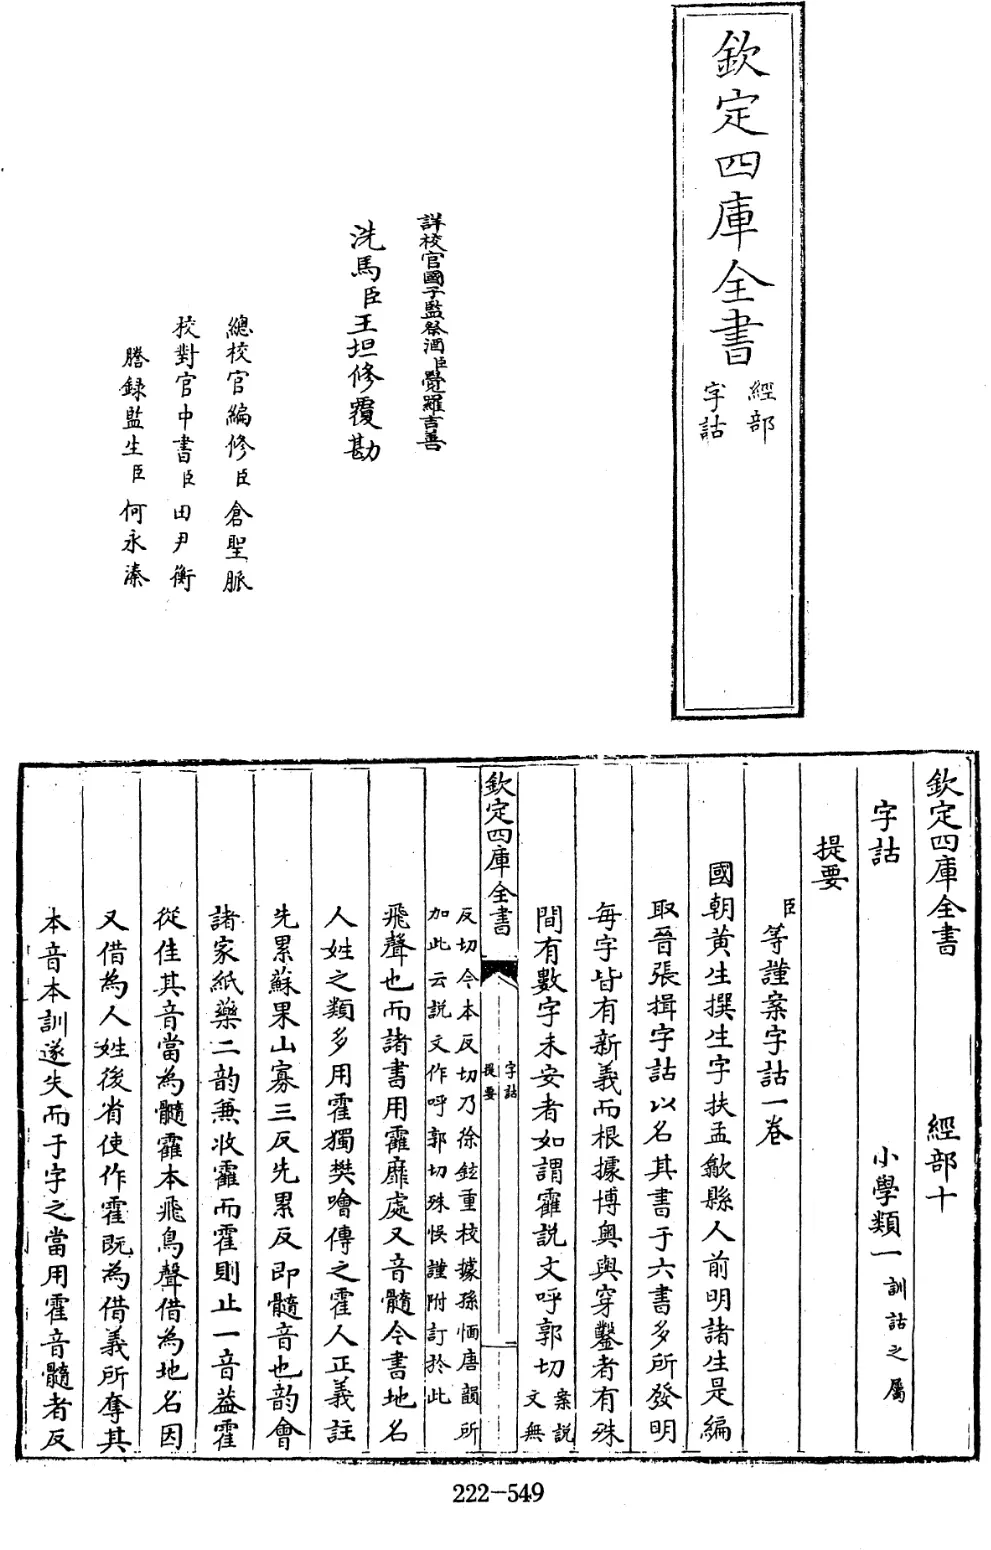 欽定四庫全書
經部
字詁
詳校官國子監祭酒臣覺羅吉善
洗馬臣王坦修覆勘
總校官編修臣倉聖脈
校對官中書臣田尹衡
謄録監生臣何永溱
欽定四庫全書 經部十
字詁 小學類一訓詁之屬
提要
臣等謹案字詁一卷
國朝黄生撰生字扶孟歙縣人前明諸生是編
取晉張揖字詁以名其書于六書多所發明
每字皆有新義而根據博奥與穿鑿者有殊
間有數字未安者如謂靃説文呼郭切案説
文無
欽定四庫全書
字詁
提要
一
反切今本反切乃徐鉉重校據孫愐唐韻所
加此云説文作呼郭切殊悞謹附訂於此
飛聲也而諸書用靃靡處又音髓今書地名
人姓之類多用霍獨樊噲傳之霍人正義註
先累蘇果山寡三反先累反即髓音也韵會
諸家紙藥二韵兼收靃而霍則止一音葢霍
從隹其音當為髓靃本飛鳥聲借為地名因
又借為人姓後省使作霍既為借義所奪其
本音本訓遂失而于字之當用霍音髓者反
222-549